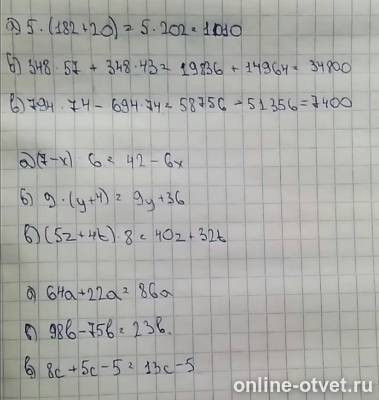 а) 5·(182+20)=5·202=1010
б) 348·57 + 348·43 = 19836 + 14964 = 34800
в) 794·74 - 694·74 = 58756 - 51356 = 7400
а) (7-x) 6 = 42 - 6x
б) 9·(y+4) = 9y+36
в) (5z+4t)·8 = 40z+32t
а) 64a+22a = 86a
б) 98b-75b = 23b.
в) 8c+5c-5 = 13c-5
online-otvet.ru